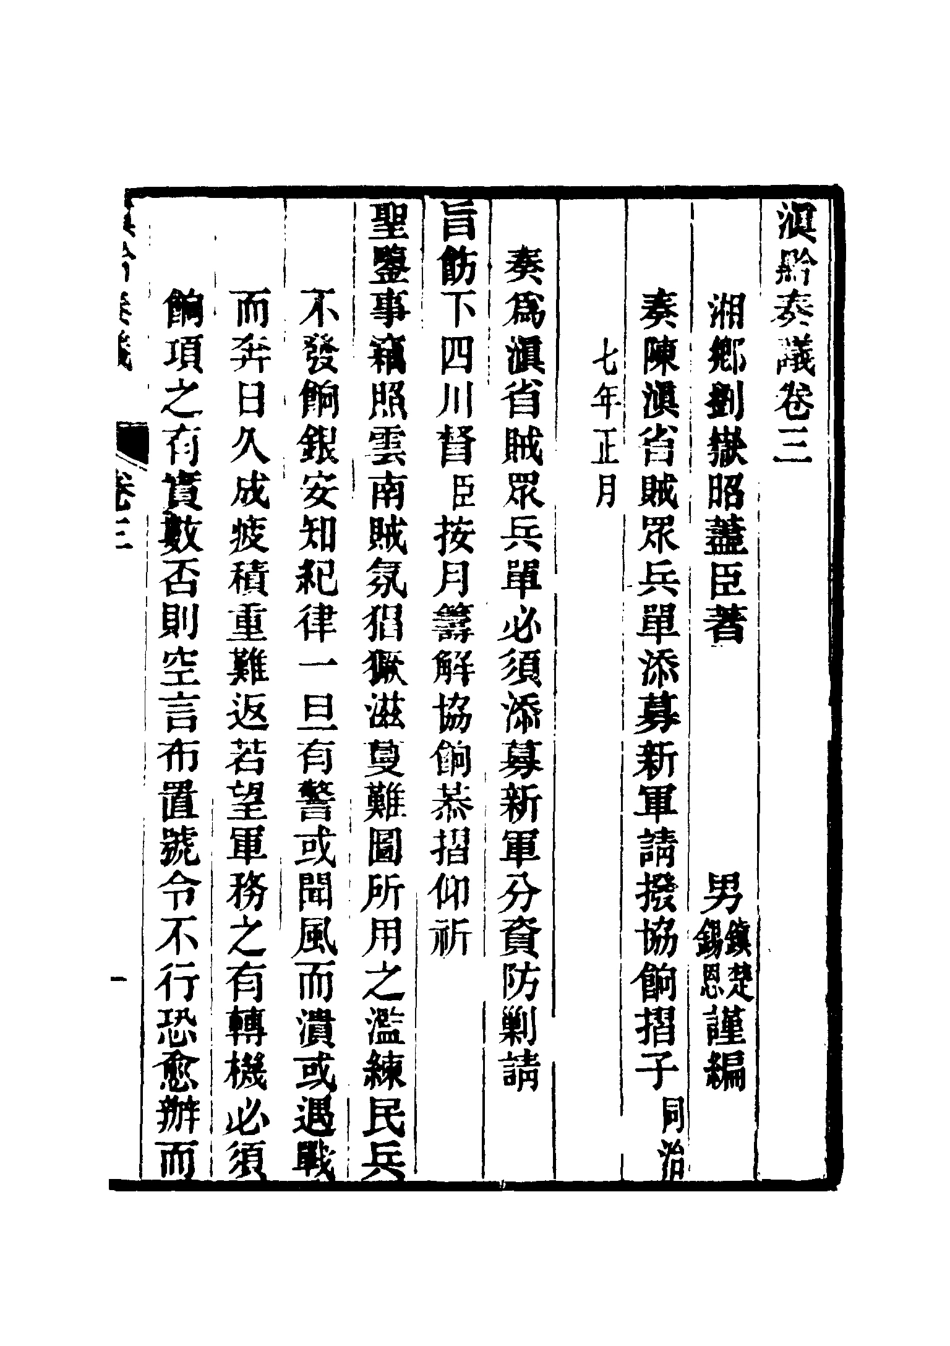 滇黔奏議卷三
湘鄉劉嶽昭藎臣著　男鎮楚錫恩謹編
奏陳滇省賊眾兵單添募新軍請撥協餉摺子同治
七年正月
奏爲滇省賊眾兵單必須添募新軍分資防剿請
旨飭下四川督臣按月籌解協餉恭摺仰祈
聖鑒事竊照雲南賊氛猖獗滋蔓難圖所用之濫練民兵
不發餉銀安知紀律一旦有警或聞風而潰或遇戰
而奔日久成疲積重難返若望軍務之有轉機必須
餉項之有實數否則空言布置號令不行恐愈辦而
滇黔奏議　卷三　一